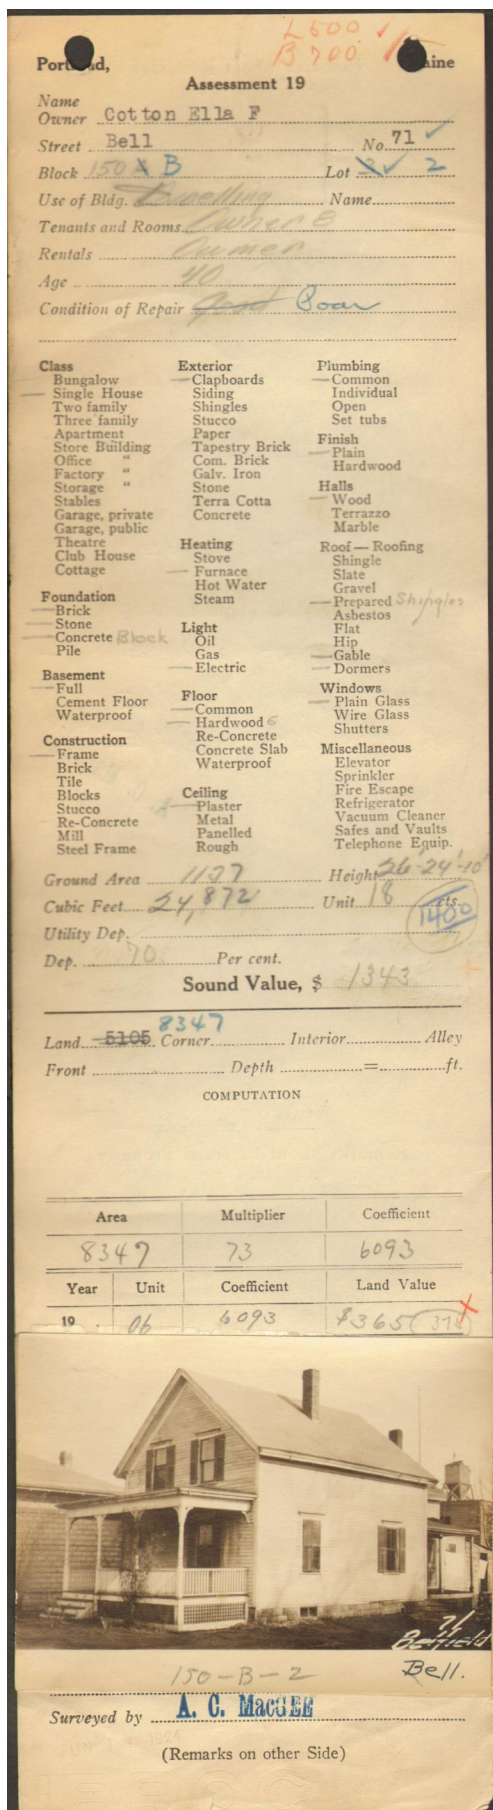 L 500
B 700
Portland, Maine
Assessment 19
Name
Owner Cotton Ella F
Street Bell No. 71
Block 150 A B Lot 3 2
Use of Bldg. Dwelling Name
Tenants and Rooms Owner 8
Rentals Owner
Age 40
Condition of Repair Good Poor
Class
Bungalow
Single House
Two family
Three family
Apartment
Store Building
Office "
Factory "
Storage "
Stables
Garage, private
Garage, public
Theatre
Club House
Cottage
Foundation
Brick
Stone
Concrete Block
Pile
Basement
Full
Cement Floor
Waterproof
Construction
Frame
Brick
Tile
Blocks
Stucco
Re-Concrete
Mill
Steel Frame
Exterior
Clapboards
Siding
Shingles
Stucco
Paper
Tapestry Brick
Com. Brick
Galv. Iron
Stone
Terra Cotta
Concrete
Heating
Stove
Furnace
Hot Water
Steam
Light
Oil
Gas
Electric
Floor
Common
Hardwood 6
Re-Concrete
Concrete Slab
Waterproof
Ceiling
Plaster
Metal
Panelled
Rough
Plumbing
Common
Individual
Open
Set tubs
Finish
Plain
Hardwood
Halls
Wood
Terrazzo
Marble
Roof — Roofing
Shingle
Slate
Gravel
Prepared Shingles
Asbestos
Flat
Hip
Gable
Dormers
Windows
Plain Glass
Wire Glass
Shutters
Miscellaneous
Elevator
Sprinkler
Fire Escape
Refrigerator
Vacuum Cleaner
Safes and Vaults
Telephone Equip.
Ground Area 1137 Height 26'-24'-10'
Cubic Feet 24,872 Unit 18 cts.
1400
Utility Dep.
Dep. 70 Per cent.
Sound Value, $ 1343
8347
Land 5105 Corner Interior Alley
Front Depth = ft.
COMPUTATION
Area Multiplier Coefficient
8347 73 6093
Year Unit Coefficient Land Value
19 06 6093 $365 375
71
Bell.
150-B-2
Surveyed by A. C. MacGEE
(Remarks on other Side)